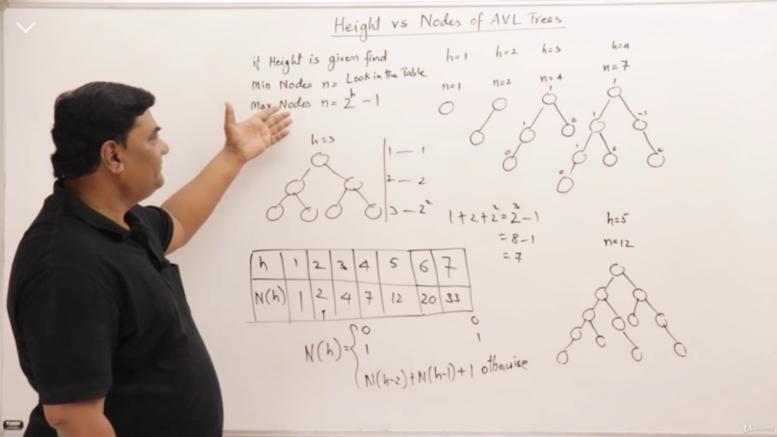 Height vs Nodes of AVL Trees
if Height is given find
Min Nodes n = Look in the Table
Max Nodes n = 2^h - 1
h=1
n=1
h=2
n=2
h=3
n=4
1
1
0
0
h=4
n=7
1
1
-1
1
0
0
0
h=3
1 — 1
2 — 2
3 — 2²
1+2+2² = 2³-1
= 8-1
= 7
h=5
n=12
h 1 2 3 4 5 6 7
N(h) 1 2 4 7 12 20 33
N(h) = { 0 0
1 1
N(h-2)+N(h-1)+1 otherwise
Udemy